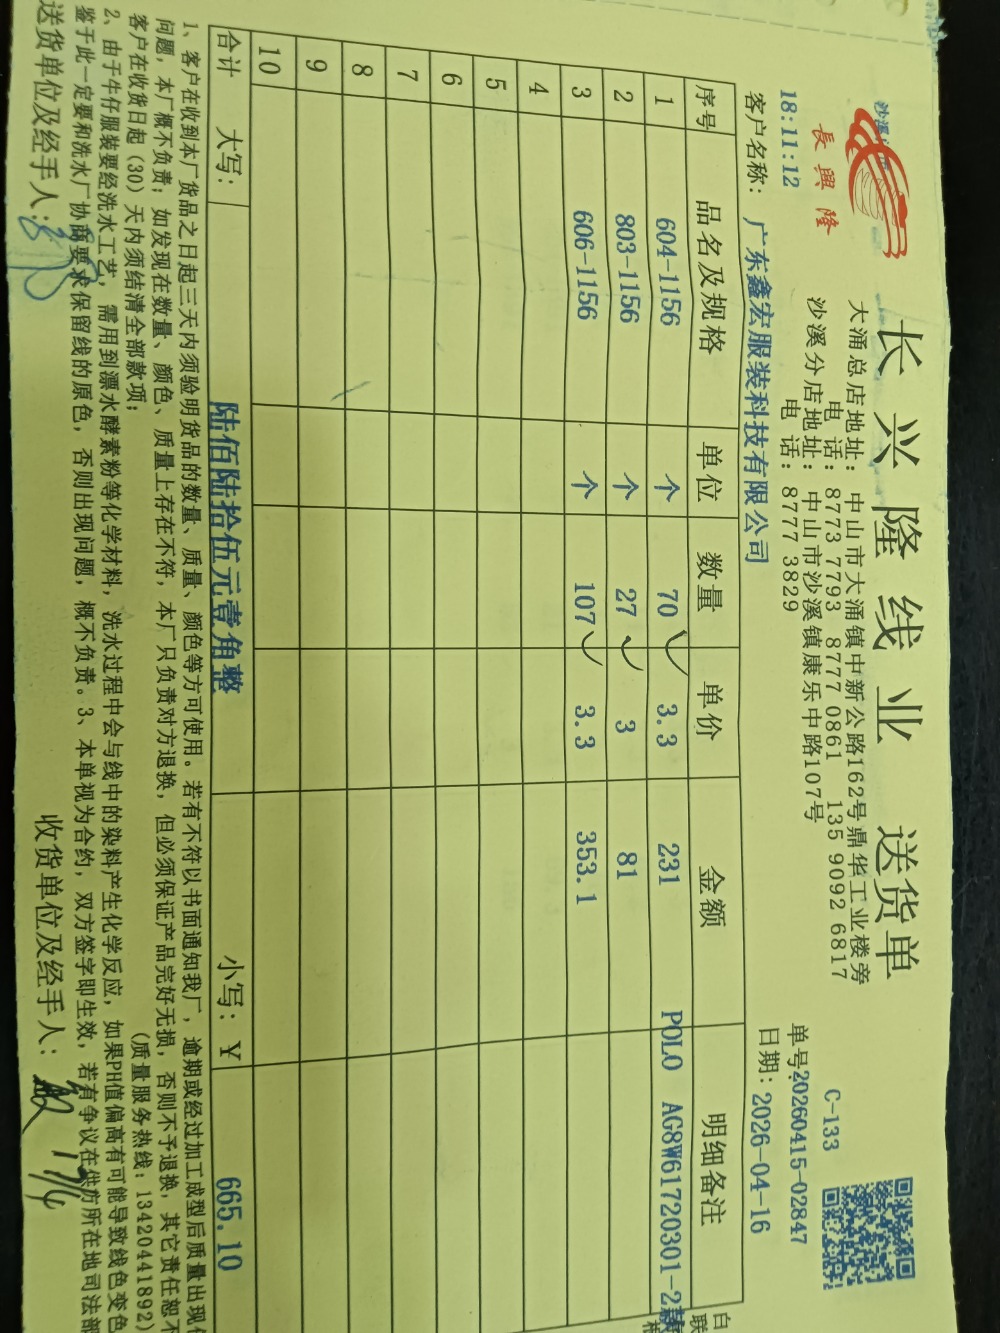 长兴隆线业 送货单
長興隆
大涌总店地址: 中山市大涌镇中新公路162号鼎华工业楼旁
电 话: 8773 7793 8777 0861 135 9092 6817
沙溪分店地址: 中山市沙溪镇康乐中路107号
电 话: 8777 3829
C-133
单号:20260415-02847
18:11:12
日期: 2026-04-16
客户名称: 广东鑫宏服装科技有限公司
序号 品名及规格 单位 数量 单价 金额 明细备注
1 604-1156 个 70 3.3 231 POLO AG8W61720301-2款
2 803-1156 个 27 3 81
3 606-1156 个 107 3.3 353.1
4
5
6
7
8
9
10
合计 大写: 陆佰陆拾伍元壹角整 小写: ¥ 665.10
1、客户在收到本厂货品之日起三天内须验明货品的数量、质量、颜色等方可使用。若有不符以书面通知我厂，逾期或经过加工成型后质量出现
问题，本厂概不负责；如发现在数量、颜色、质量上存在不符，本厂只负责对方退换，但必须保证产品完好无损，否则不予退换，其它责任恕不
客户在收货日起（30）天内须结清全部款项；
(质量服务热线: 13420441892)
2、由于牛仔服装要经洗水工艺，需用到漂水酵素粉等化学材料，洗水过程中会与线中的染料产生化学反应，如果PH值偏高有可能导致线色变色
鉴于此一定要和洗水厂协商要求保留线的原色，否则出现问题，概不负责。3、本单视为合约，双方签字即生效，若有争议在供方所在地司法部
送货单位及经手人:
收货单位及经手人: 17/4
白
联